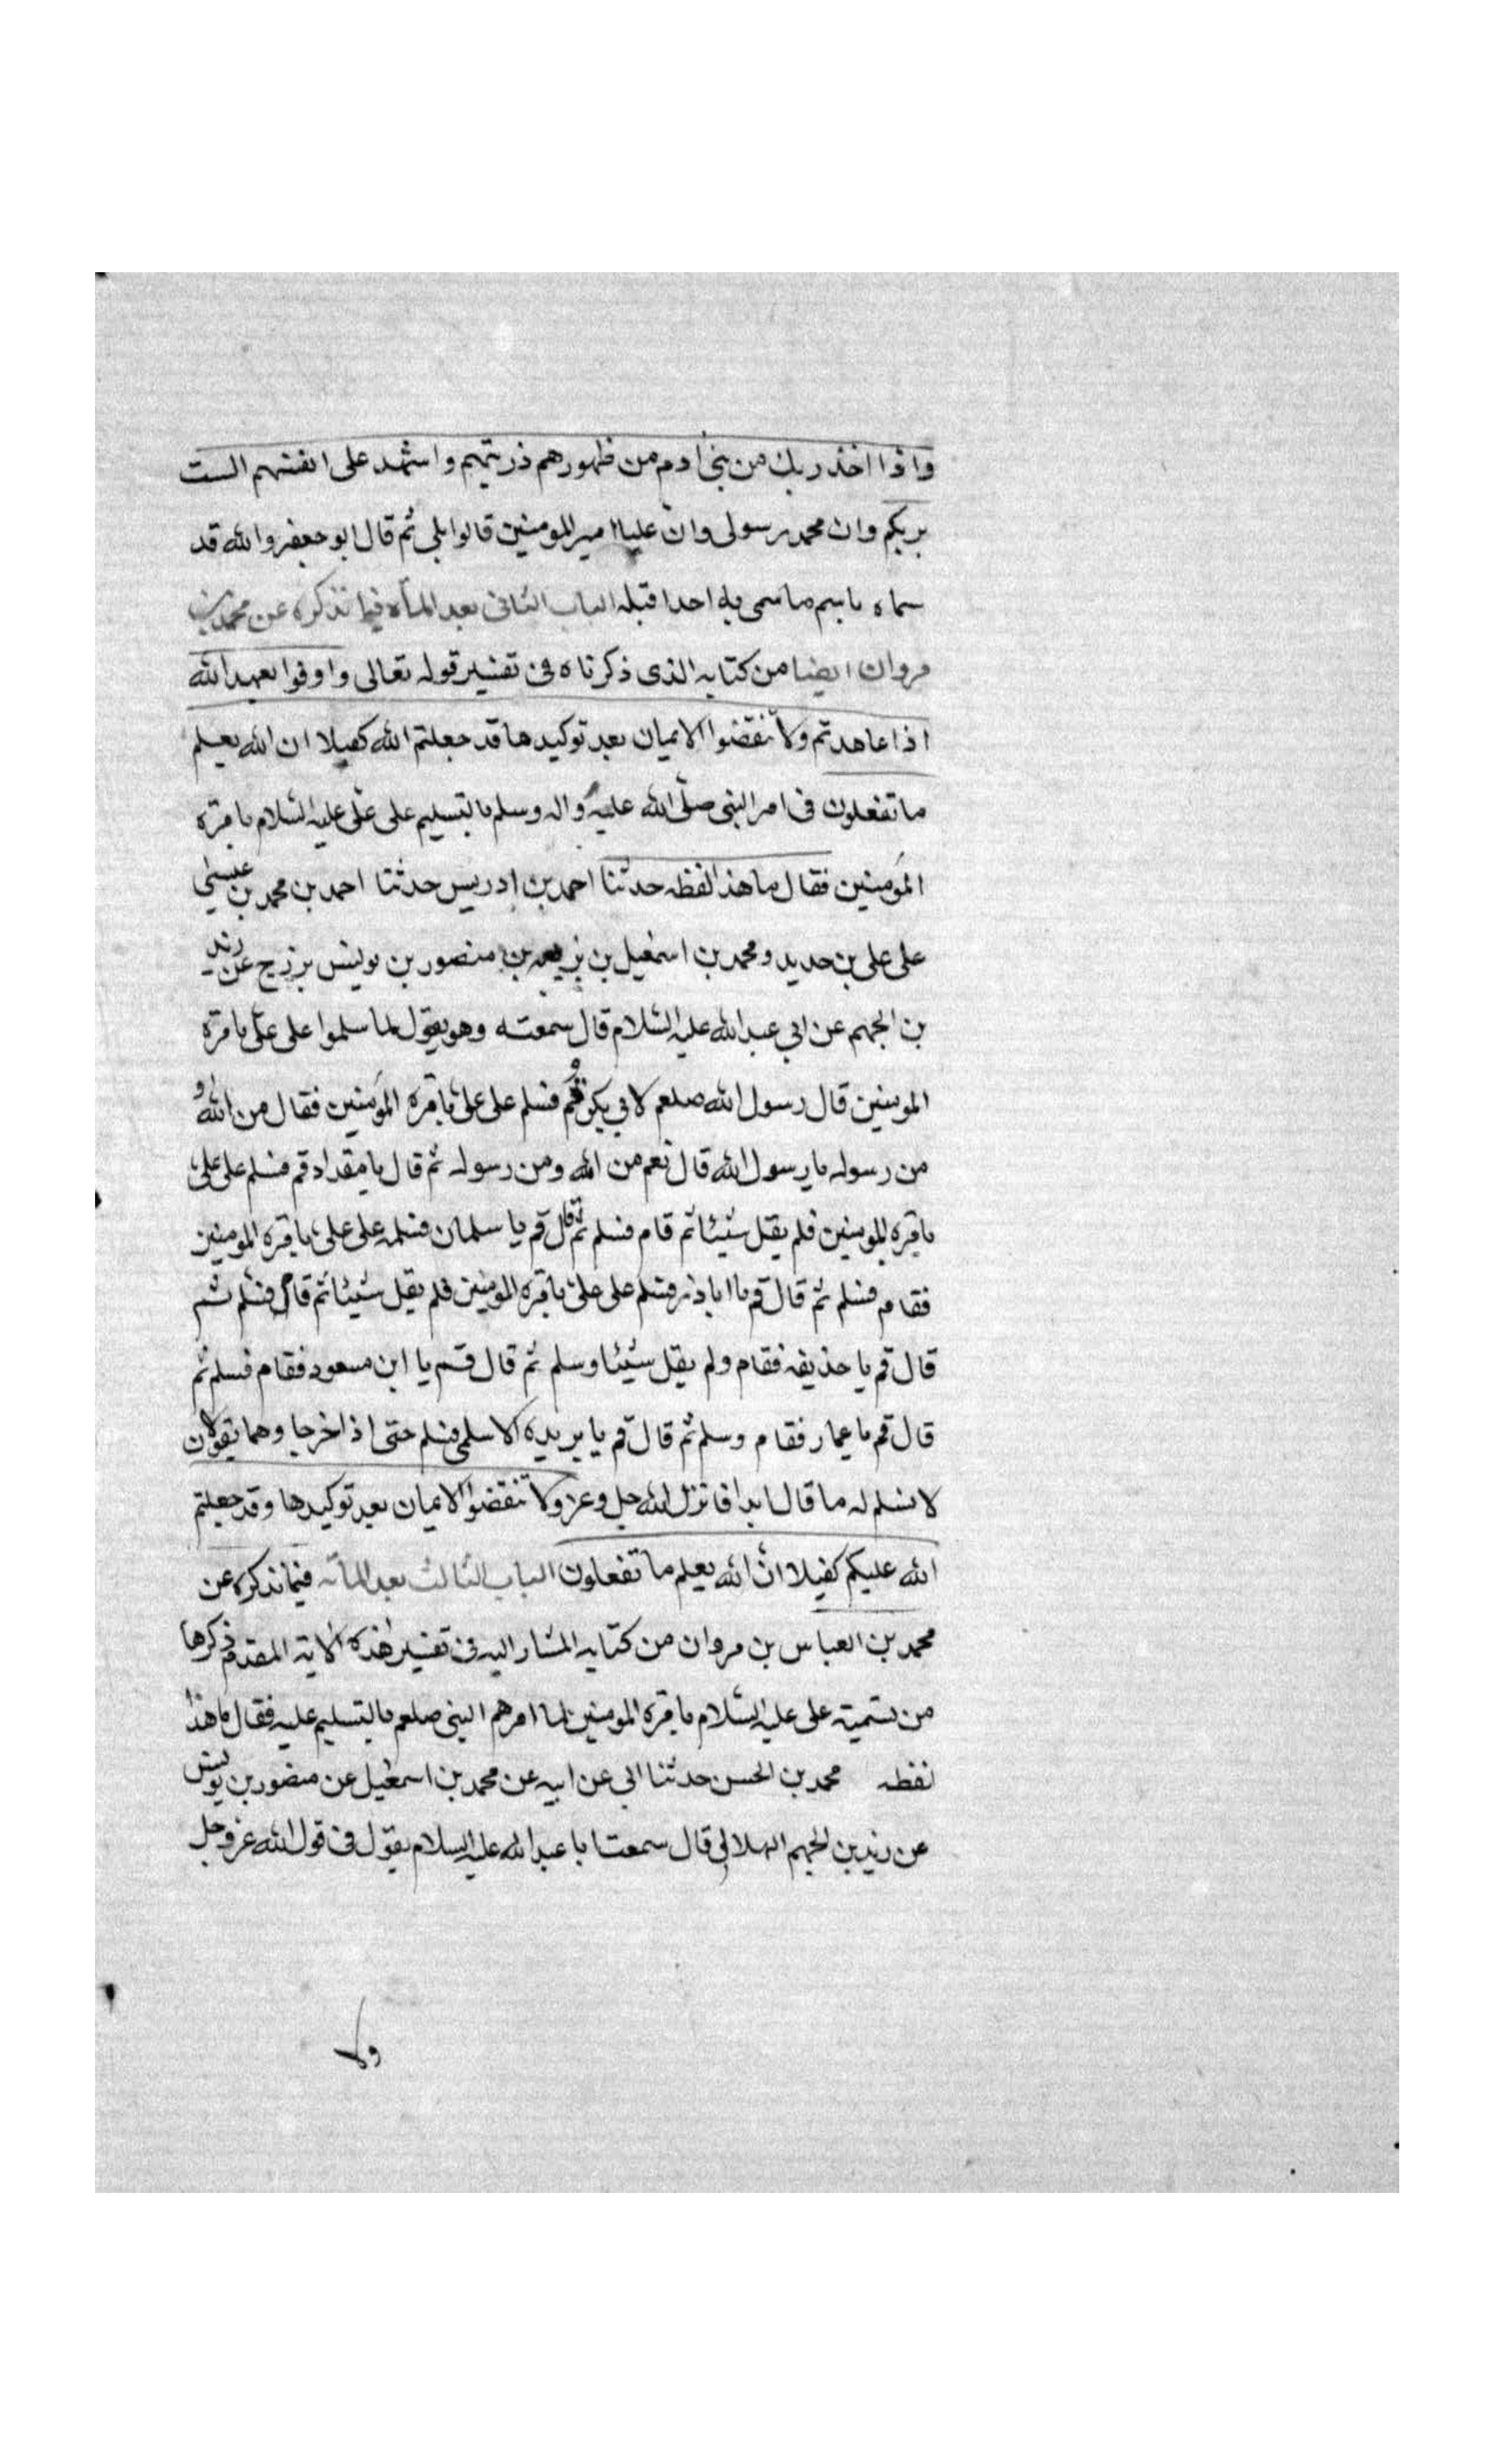 واذا اخذ ربك من بنی ادم من ظهورهم ذريتهم واشهد على انفسهم الست
بربكم وان محمد رسولى وان عليا امير المومنين قالوا بلى ثم قال ابو جعفر والله قد
سماه باسم ما سمى به احدا قبله الباب الثانى بعد المأه فيما نذكره عن محمد بن
مروان ايضا من كتابه الذى ذكرناه فى تفسير قوله تعالى واوفوا بعهد الله
اذا عاهدتم ولا تنقضوا الايمان بعد توكيدها قد جعلتم الله كفيلا ان الله يعلم
ما تفعلون فى امر النبى صلّى الله عليه واله وسلم بالتسليم على علّى عليه السّلام بامرة
المؤمنين فقال ما هذا لفظه حدثنا احمد بن ادريس حدثنا احمد بن محمد بن عيسى
على على بن حديد ومحمد بن اسمعيل بن بزيعه بن منصور بن يونس بزرج عن زيد
بن الجهم عن ابى عبد الله عليه السّلام قال سمعته وهو يقول لما سلموا على علّى بامرة
المومنين قال رسول الله صلعم لابى بكر قم فسلم على على بامرة المؤمنين فقال من الله و
من رسوله يا رسول الله قال نعم من الله ومن رسوله ثم قال يا مقداد قم فسلم على على
بامره المومنين فلم يقل شيئا ثم قام فسلم ثم قال قم يا سلمان فسلم على على بامره المومنين
فقام فسلم ثم قال قم يا اباذر فسلم على على بامره المومنين فلم يقل شيئا ثم قام فسلم ثم
قال قم يا حذيفه فقام ولم يقل شيئا وسلم ثم قال قم يا ابن مسعود فقام فسلم ثم
قال قم يا عمار فقام وسلم ثم قال قم يا بريده الاسلمى فسلم حتى اذا خرجا وهما يقولان
لا نسلم له ما قال ابدا فانزل الله جل وعز ولا تنقضوا الايمان بعد توكيدها وقد جعلتم
الله عليكم كفيلا انّ الله يعلم ما تفعلون الباب الثالث بعد المأته فيما نذكره عن
محمد بن العباس بن مروان من كتابه المشار اليه فى تفسير هذه الاية المقدم ذكرها
من تسمية على عليه السّلام بامره المومنين لما امرهم النبى صلعم بالتسليم عليه فقال ما هذا
لفظه محمد بن الحسن حدثنا ابى عن ابيه عن محمد بن اسمعيل عن منصور بن يونس
عن زيد بن الجهم الهلالى قال سمعت ابا عبد الله عليه السلام يقول فى قول الله عز وجل
ولا